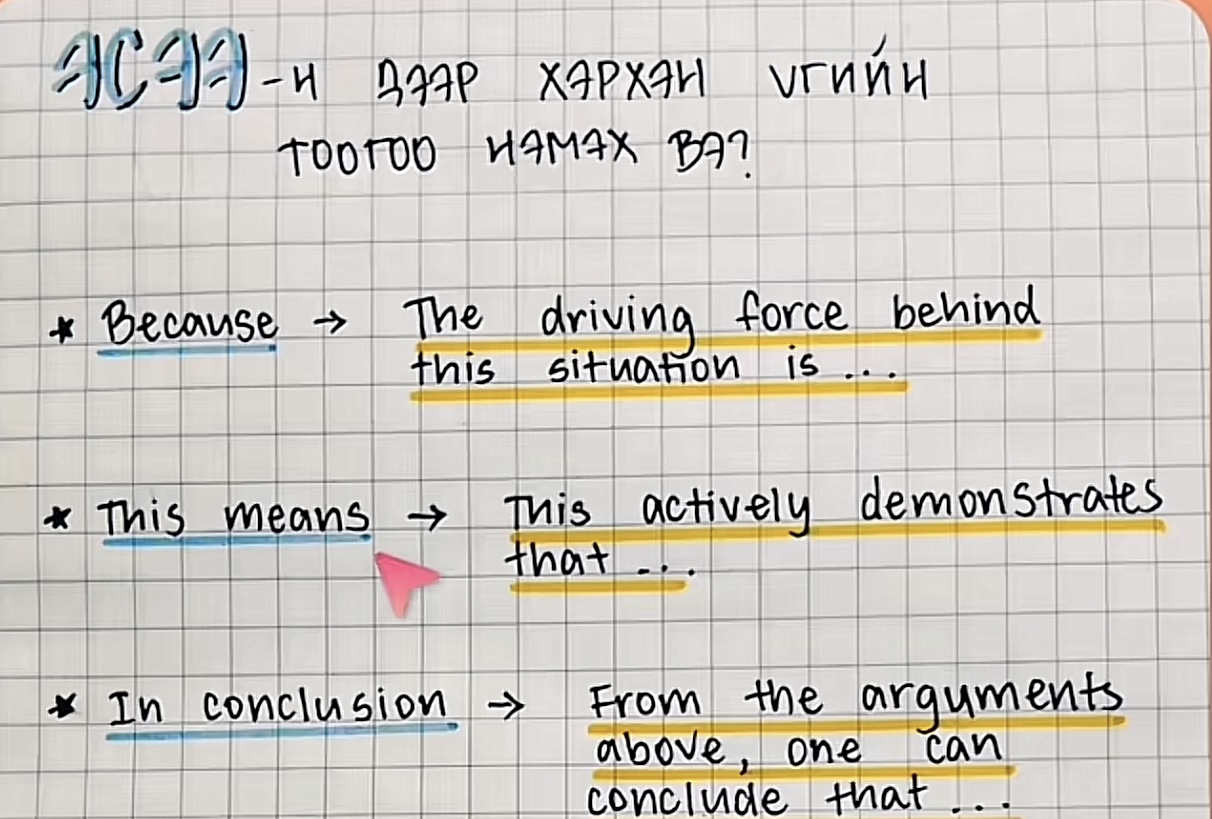 ЭСЭЭ-Н ДЭЭР ХЭРХЭН ҮГИЙН
ТООГОО НЭМЭХ ВЭ?
* Because → The driving force behind
this situation is ...
* This means → This actively demonstrates
that ...
* In conclusion → From the arguments
above, one can
conclude that ...